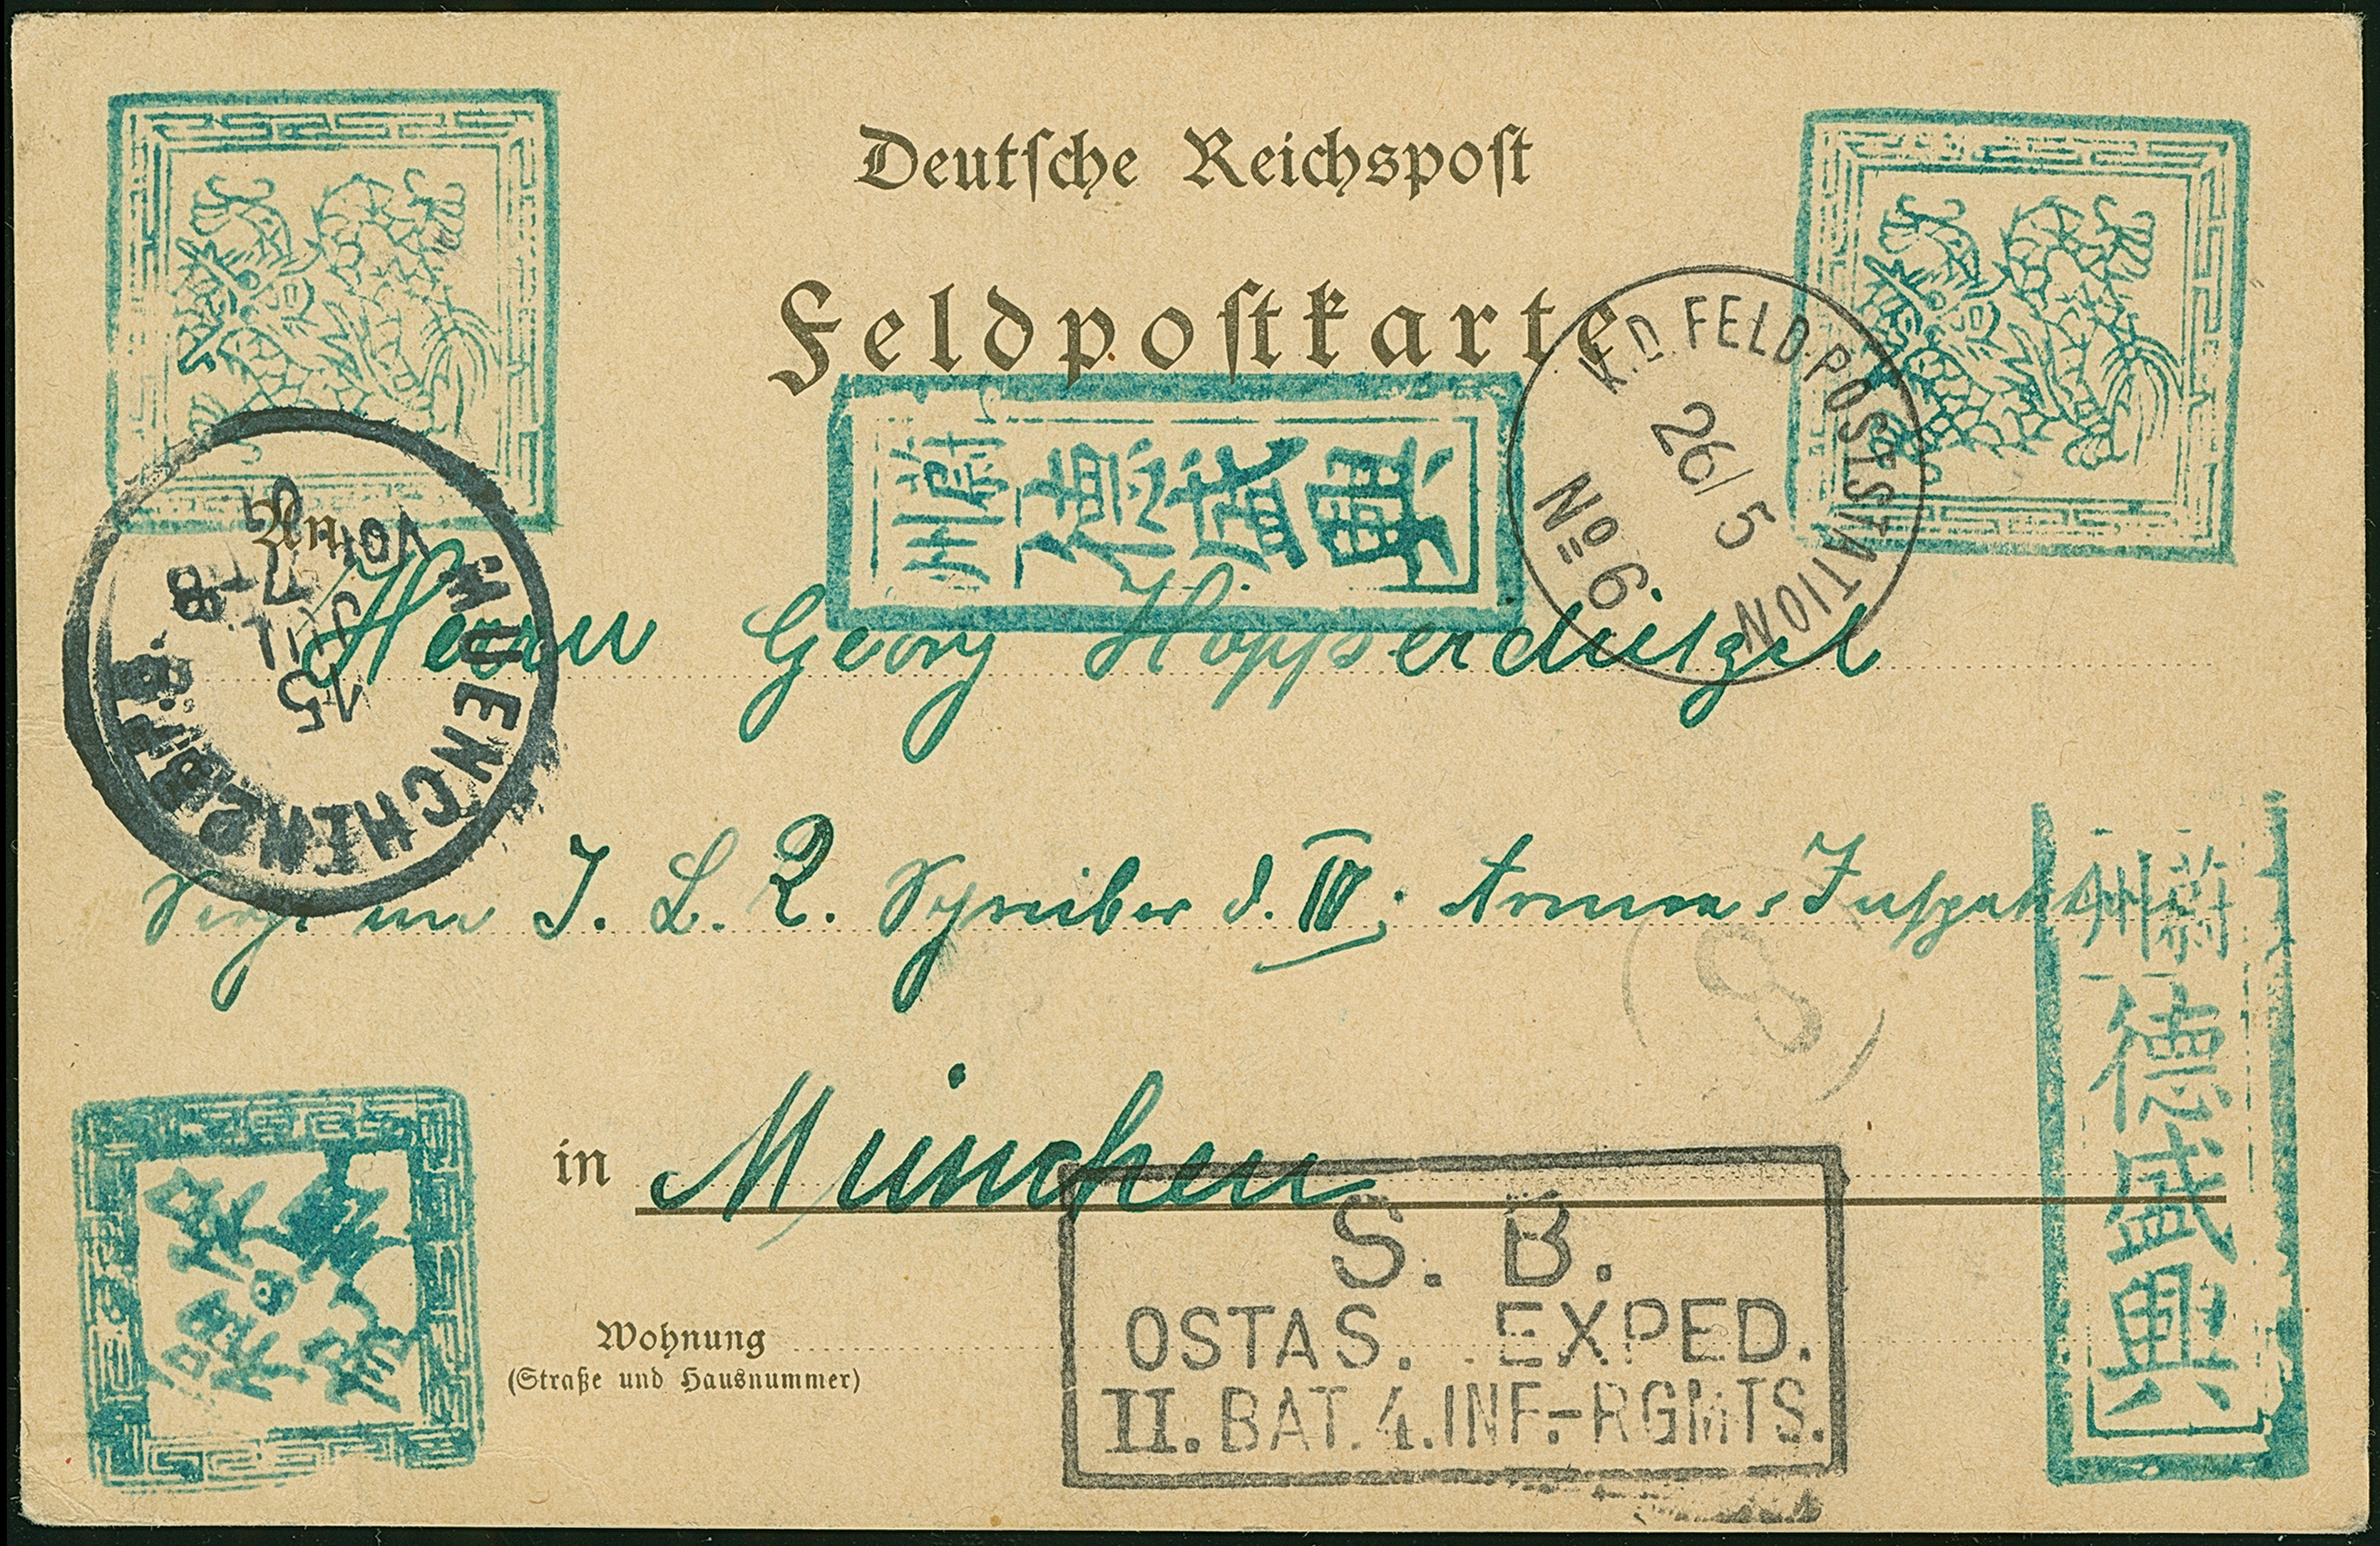 Deutsche Reichspost
Feldpostkarte
蔚州 德盛興
K.D. FELD-POSTSTATION
26/5
No 6
An
MUENCHEN
15 JUL
VOR
7-8
Herrn Georg Höpperdietzel
im I. L. R. Schreiber d. IV. Armee-Inspektion
蔚州
德盛興
S
in München
S. B.
OSTAS. EXPED.
II. BAT. 4. INF.-RGMTS.
Wohnung
(Straße und Hausnummer)